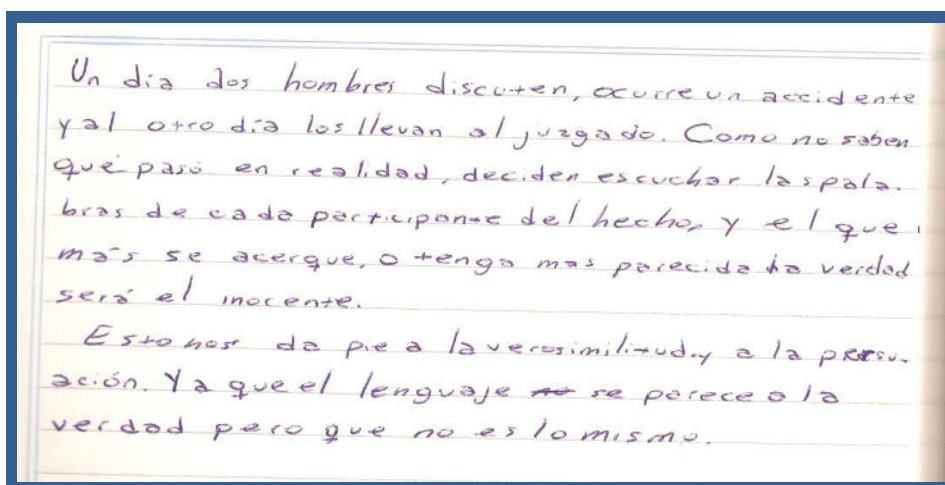 Un día dos hombres discuten, ocurre un accidente
y al otro día los llevan al juzgado. Como no saben
qué pasó en realidad, deciden escuchar las pala-
bras de cada participante del hecho, y el que
más se acerque, o tenga mas parecida la verdad
será el inocente.
Esto nos da pie a la verosimilitud, y a la persu-
ación. Ya que el lenguaje se parece a la
verdad pero que no es lo mismo.